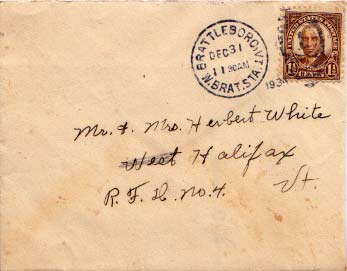 BRATTLEBORO, VT.
DEC 31
11 30AM
W. BRAT. STA.
193
UNITED STATES POSTAGE
1½ 1½
Mr. & Mrs. Herbert White
West Halifax
R. F. D. No. 4. Vt.